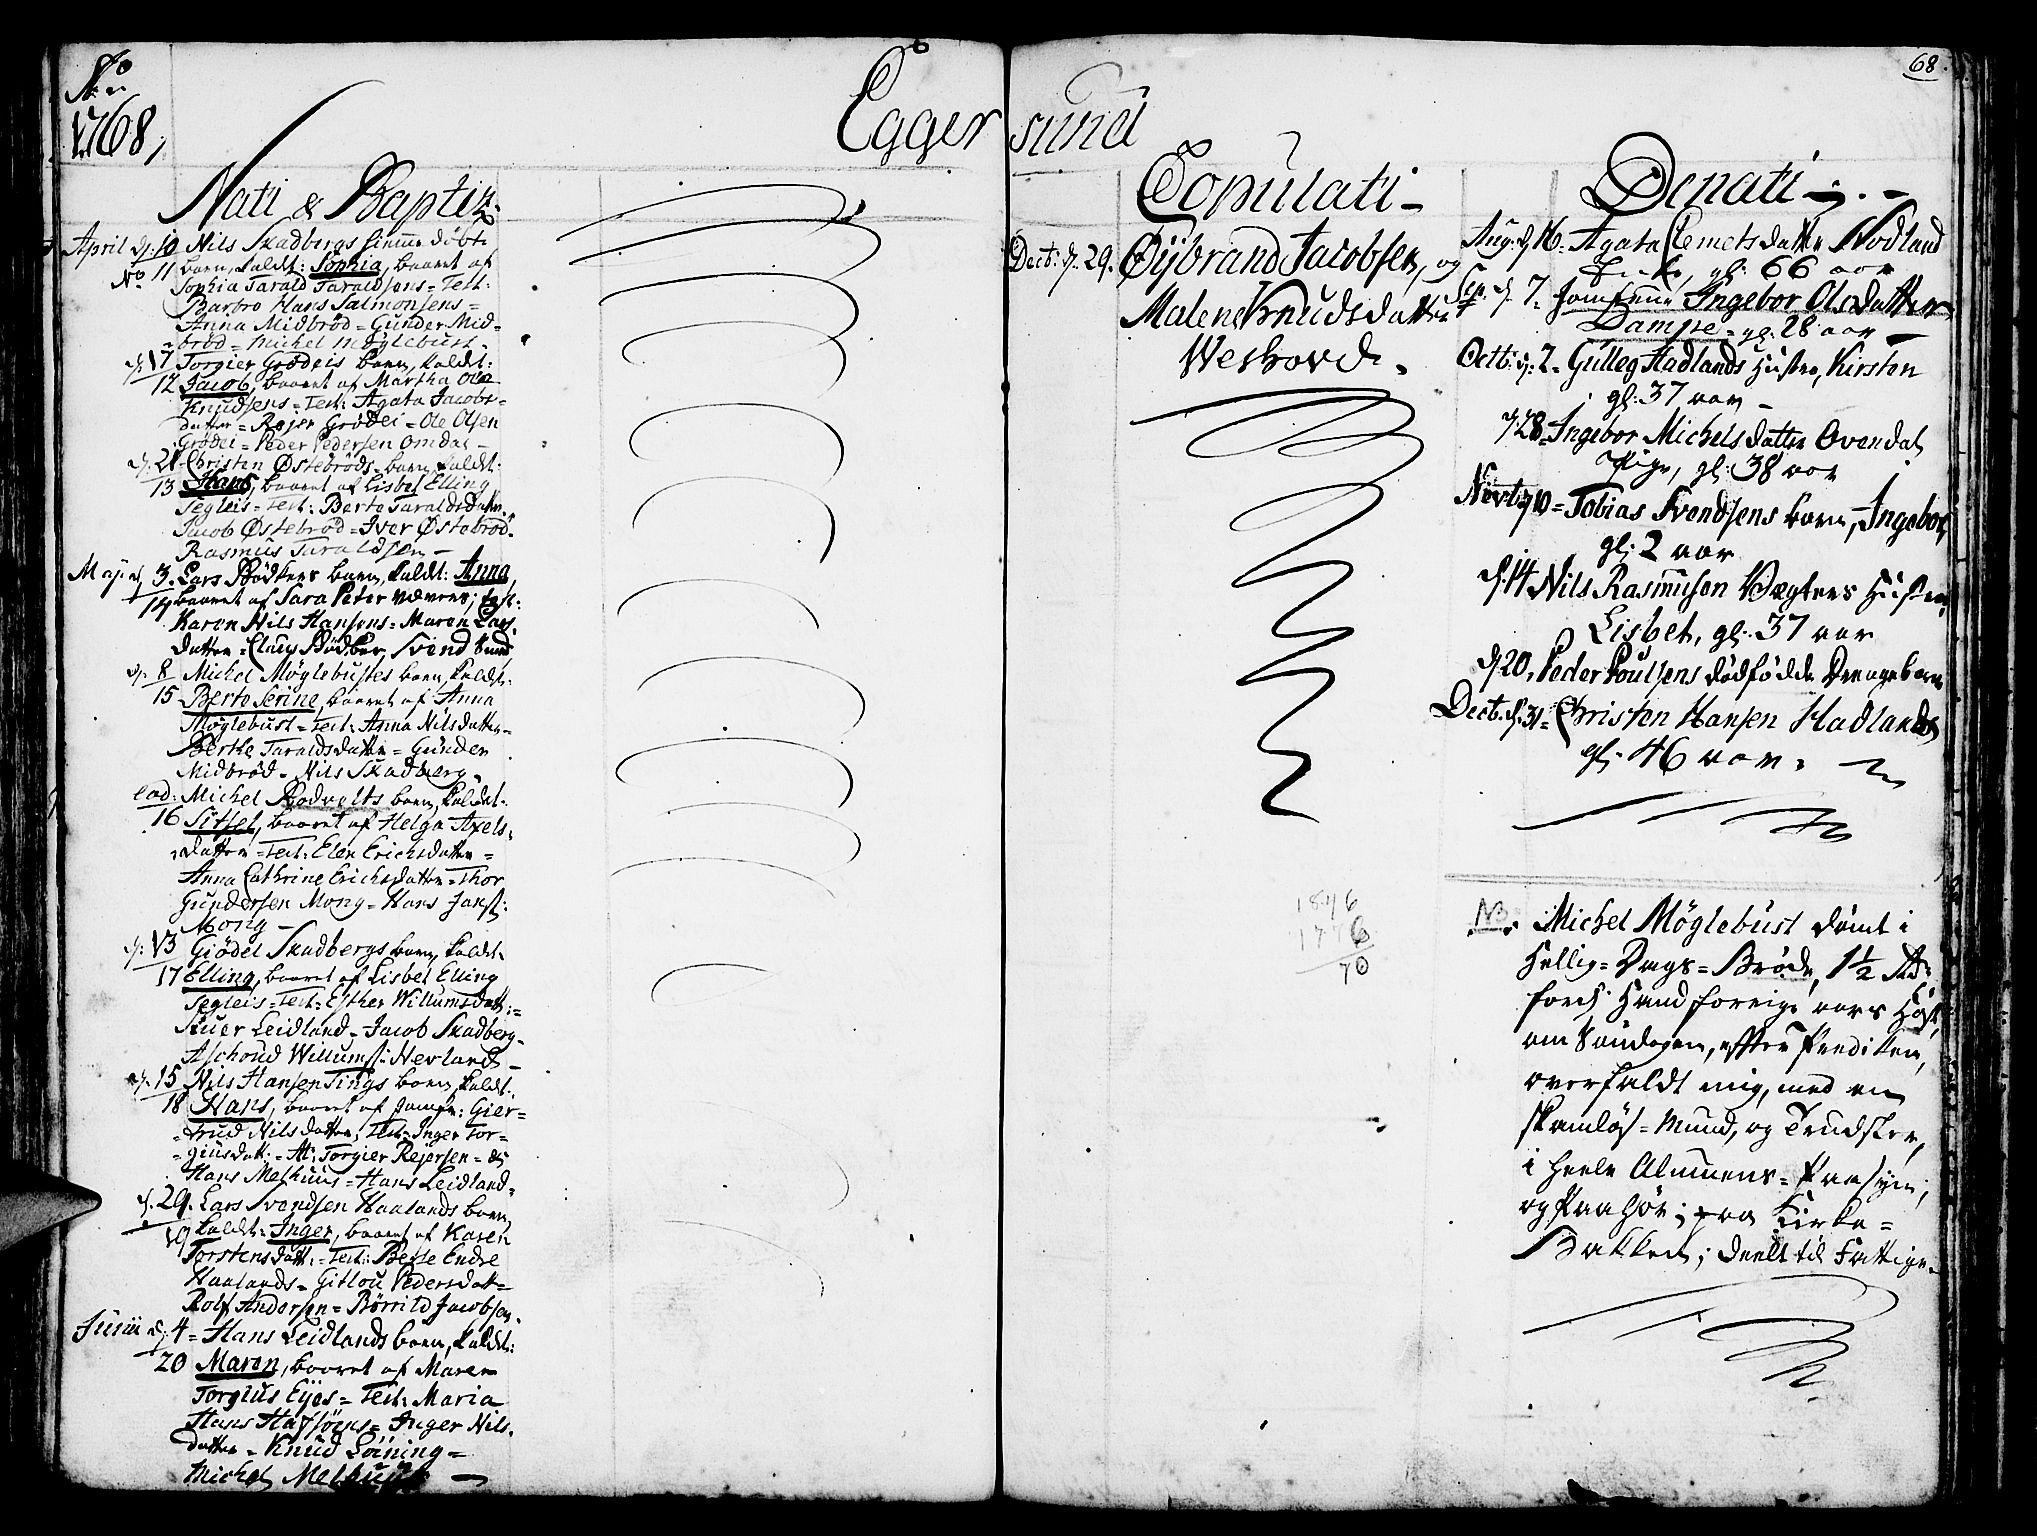 Aō
1768,
Egger
sund
68.
Nati & Baptiz.
April d: 10 Nils Skadbergs hiemme døbte
No 11 barn, kaldt: Sophia, baaret af
Sophia Tarald Taraldsens = Test:
Barbro Hans Salmonsens =
Anna Midbrød = Gunder Mid-
brød = Michel Møglebust.
d: 17 Torgier Grødeis barn, kaldt:
12 Jacob, baaret af Martha Ole
Knudsens = Test: Agata Jacobs-
datter = Rejer Grødei = Ole Olsen
Grødei = Peder Pedersen Omdal -
d. 21 Christen Østebrøds barn, kaldt:
13 Hans, baaret af Lisbet Elling
Segleis = Test: Berte Taraldsdatter
Jacob Østebrød = Iver Østebrød.
Rasmus Taraldsen -
Maj: d. 3. Lars Bødkers barn, kaldt: Anna,
14 baaret af Sara Peter Wævers; Test:
Karen Nils Hansens = Maren Lars
datter = Claus Bødker, Svend
d. 8 Michel Møglebustes barn, kaldt:
15 Berte Serine, baaret af Anna
Møglebust = Test: Anna Nilsdatter =
Berthe Taraldsdatter = Gunder
Midbrød = Nils Skadberg.
eod: Michel Rodvelts barn, kaldet:
16 Sitsel, baaret af Helga Axels-
datter = Test: Elen Erichsdatter =
Anna Cathrine Erichsdatter = Thor
Gundersen Mong = Hans Jans:
Mong -
d: 13 Giödel Skadbergs barn, kaldt:
17 Elling, baaret af Lisbet Elling
Segleis = Test: Esther Willumsdatt: =
Siuer Leidland = Jacob Skadberg =
Aschoud Willums: Nevland -
d. 15 Nils Hansen Tings barn, kaldt:
18 Hans, baaret af Jomfr: Gier=
trud Nilsdatter, Test: Inger Tor=
giusdatt: = Mr: Torgier Rejersen = &
Hans Melhuus = Hans Leidland =
d. 29. Lars Svendsen Haalands barn,
19 kaldt: Inger, baaret af Karen
Torstensdatt: = Test: Berte Endre
Haalands = Gitlou Pedersdatt =
Rolf Andersen = Børrild Jacobsen.
Junii d. 4 = Hans Leidlands barn, kaldt:
20 Maren, baaret af Maren
Torgius Eyes = Test: Maria
Hans Hafsöens = Inger Nils-
datter = Knud Löining =
Michel Melhuus -
Copulati -
Decb: d. 29. Øijbrand Jacobsen, og
Malene Knudsdatter
Weshovd.
1846
1776
70
Denati -
Aug: d. 16 = Agata Clemetsdatter Nodland
Enke, gl: 66 aar
Sep. d. 7. Jomfrue Ingebor Olsdatter
Dampe = gl: 28 aar -
Octb: d: 2 = Gulleg Hadlands Hustru, Kirsten
gl: 37 aar -
d 28 = Ingebor Michelsdatter Ovendal
Pige, gl: 38 aar
Novb: d 10 = Tobias Svendsens barn, Ingebor,
gl: 2 aar
d. 14 Nils Rasmusen Vægters Hustru,
Lisbet, gl: 37 aar
d. 20, Peder Poulsens dødfødde Drengebarn
Decb. d. 31 = Christen Hansen Hadlands
gl: 46 aar.
NB. Michel Möglebust dømt i
Hellig = Dags = Brøde, 1½ Rd
fordi hand forrige aars Høst,
om Søndagen, efter Prediken,
overfaldt mig, med en
skamløs = Mund, og Trudsler,
i heele Almuens = Paasyn,
og Paahør; paa Kirke =
Bakken; deelt til Fattige.